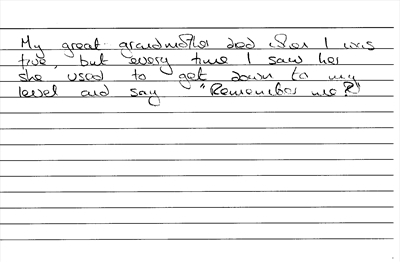 My great grandmother died when I was
five, but every time I saw her
she used to get down to my
level and say "Remember me?"